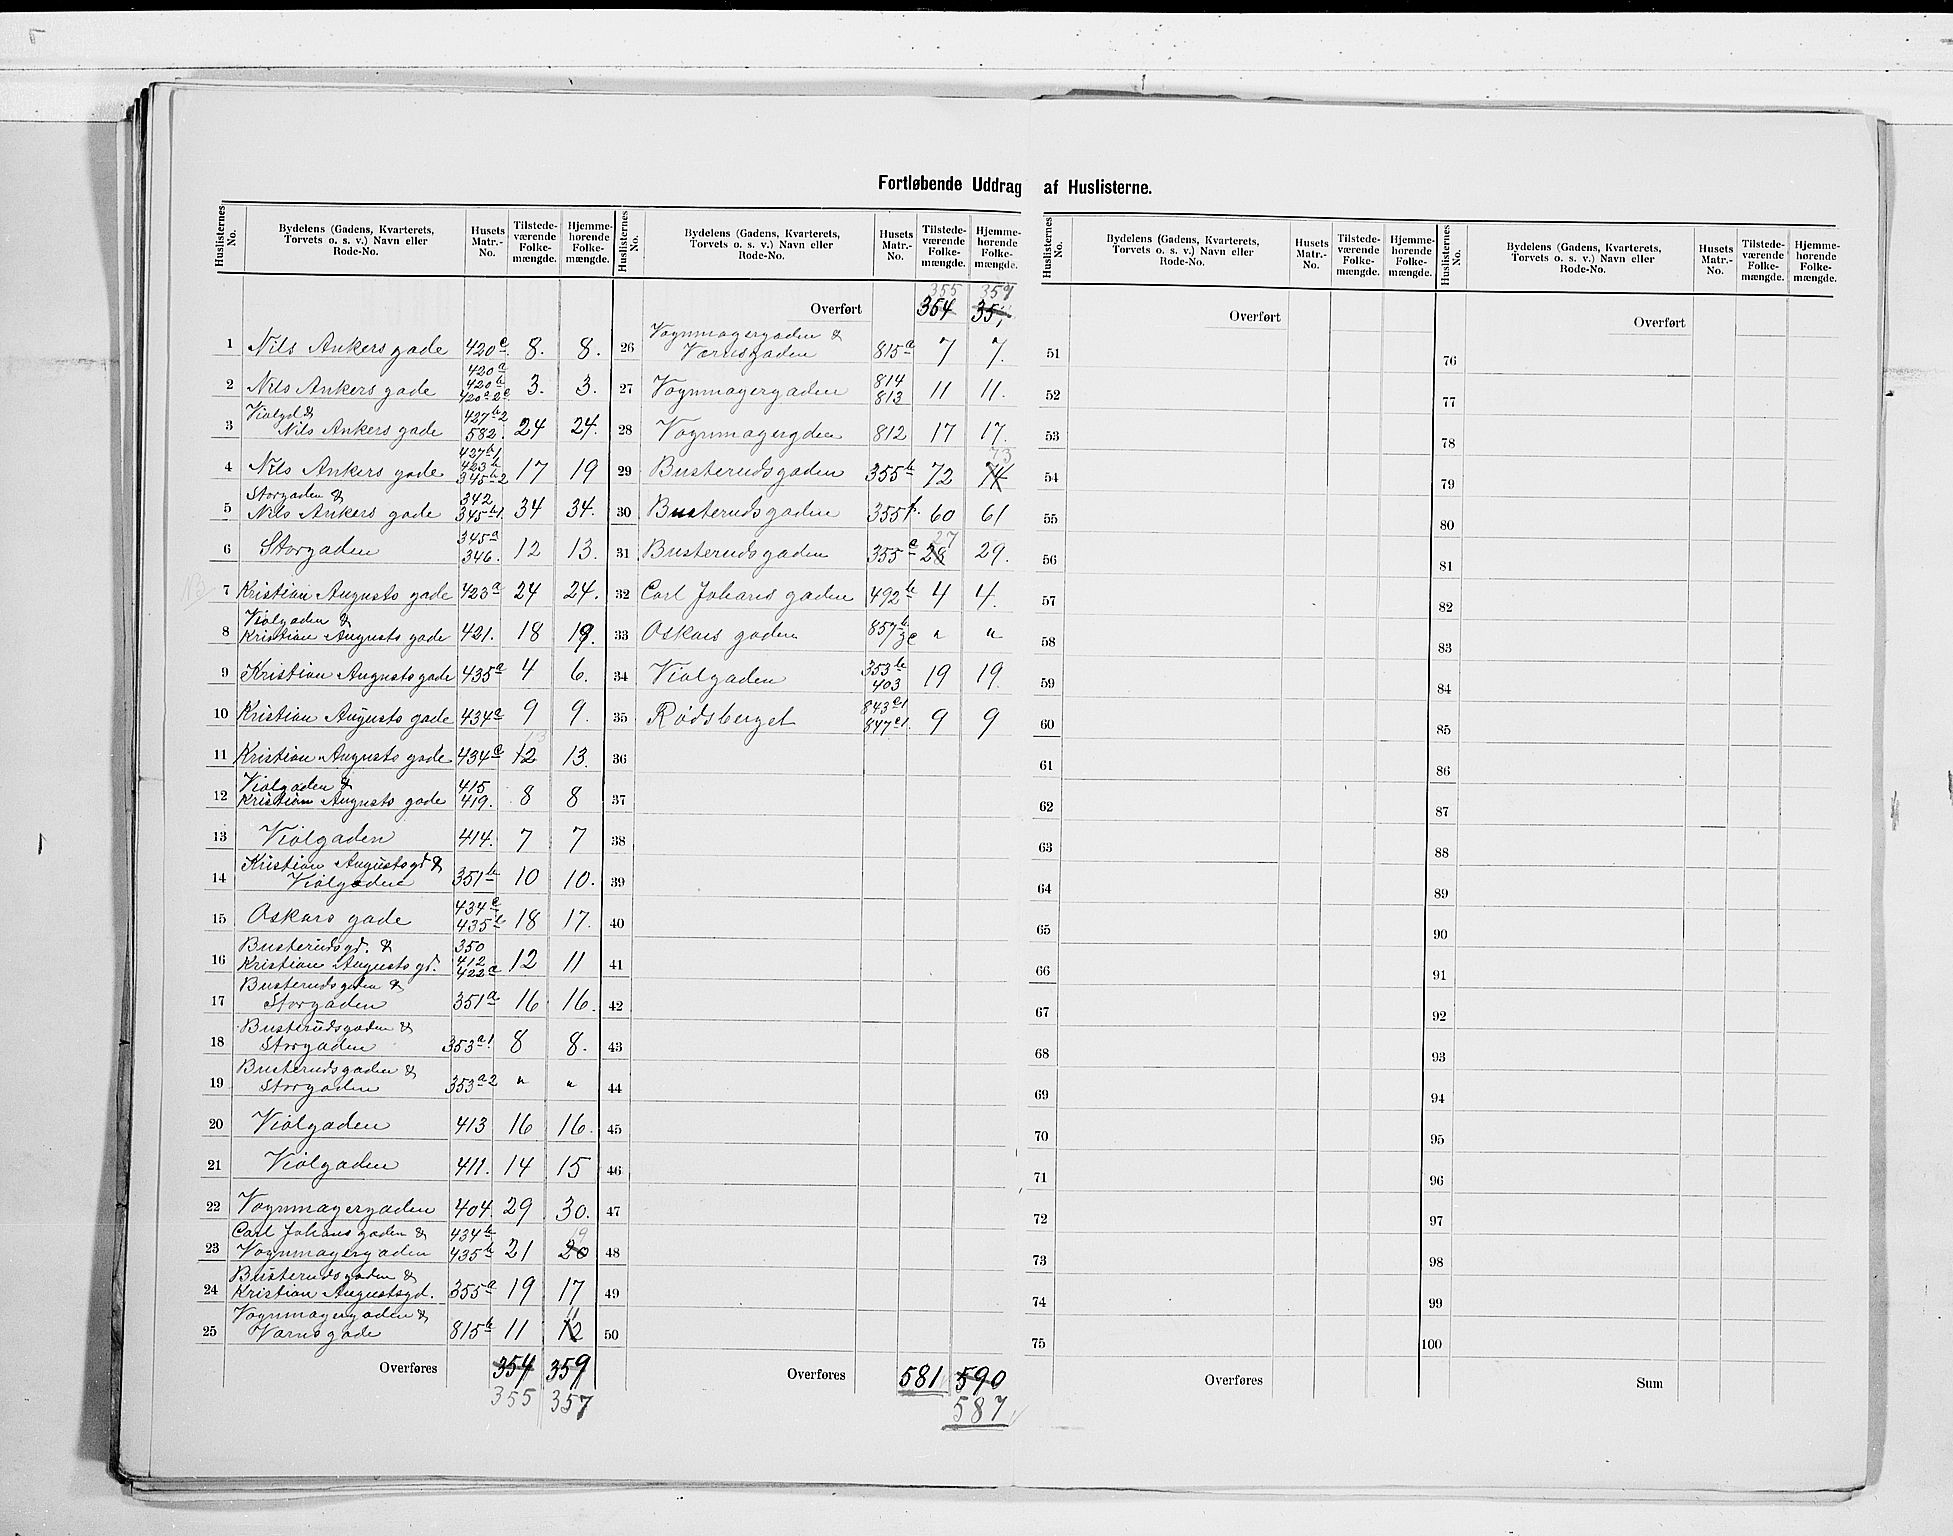 Fortløbende Uddrag af Huslisterne.
Huslisternes No. | Bydelens (Gadens, Kvarterets, Torvets o. s. v.) Navn eller Rode-No. | Husets Matr.-No. | Tilstedeværende Folkemængde. | Hjemmehørende Folkemængde.
1 Nils Ankers gade 420c. 8. 8.
2 Nils Ankers gade 420a 420b 3. 3.
3 Violgd & Nils Ankers gade 427b2 582. 24 24.
4 Nils Ankers gade 427b1 423b 345b2 17 19
5 Storgaden & Nils Ankers gade 342 345b1. 34 34.
6 Storgaden 345a 346. 12 13.
7 Kristian Augusts gade 423a 24 24.
8 Violgaden & Kristian Augusts gade 421. 18 19.
9 Kristian Augusts gade 435a 4 6.
10 Kristian Augusts gade 434a 9 9.
11 Kristian Augusts gade 434c 12 13 13.
12 Violgaden & Kristian Augusts gade 415 419. 8 8
13 Violgaden 414. 7 7
14 Kristian Augustsgd & Violgaden 351b 10 10.
15 Oskars gade 434c 435b 18 17.
16 Busterudsgd. & Kristian Augusts gd. 350 412 422a 12 11
17 Busterudsgaden & Storgaden 351a 16 16.
18 Busterudsgaden & Storgaden 353a1 8 8.
19 Busterudsgaden & Storgaden 353a2 " "
20 Violgaden 413 16 16.
21 Violgaden 411. 14 15
22 Vognmagergaden 404. 29 30.
23 Carl Johans gaden & Vognmagergaden 434b 435b 21 20 19
24 Busterudsgaden & Kristian Augustsgd. 355a 19 17
25 Vognmagergaden & Værns gade 815b 11 12 11
Overføres 354 359
355 357
Huslisternes No. | Bydelens (Gadens, Kvarterets, Torvets o. s. v.) Navn eller Rode-No. | Husets Matr.-No. | Tilstedeværende Folkemængde. | Hjemmehørende Folkemængde.
355 357
Overført 354
26 Vognmagergaden & Værnsgaden 815a 7 7.
27 Vognmagergaden 814 813 11 11.
28 Vognmagergden 812 17 17.
29 Busterudsgaden 355b 72 74 73
30 Busterudsgaden 355 60 61
31 Busterudsgaden 355c 28 27 29.
32 Carl Johans gaden 492b 4 4.
33 Oskars gaden 857b " "
34 Violgaden 353b 403 19 19.
35 Rødsberget 843c1 847c1. 9 9
36
37
38
39
40
41
42
43
44
45
46
47
48
49
50
Overføres 581 590
587
Huslisternes No. | Bydelens (Gadens, Kvarterets, Torvets o. s. v.) Navn eller Rode-No. | Husets Matr.-No. | Tilstedeværende Folkemængde. | Hjemmehørende Folkemængde.
Overført
51
52
53
54
55
56
57
58
59
60
61
62
63
64
65
66
67
68
69
70
71
72
73
74
75
Overføres
Huslisternes No. | Bydelens (Gadens, Kvarterets, Torvets o. s. v.) Navn eller Rode-No. | Husets Matr.-No. | Tilstedeværende Folkemængde. | Hjemmehørende Folkemængde.
Overført
76
77
78
79
80
81
82
83
84
85
86
87
88
89
90
91
92
93
94
95
96
97
98
99
100
Sum